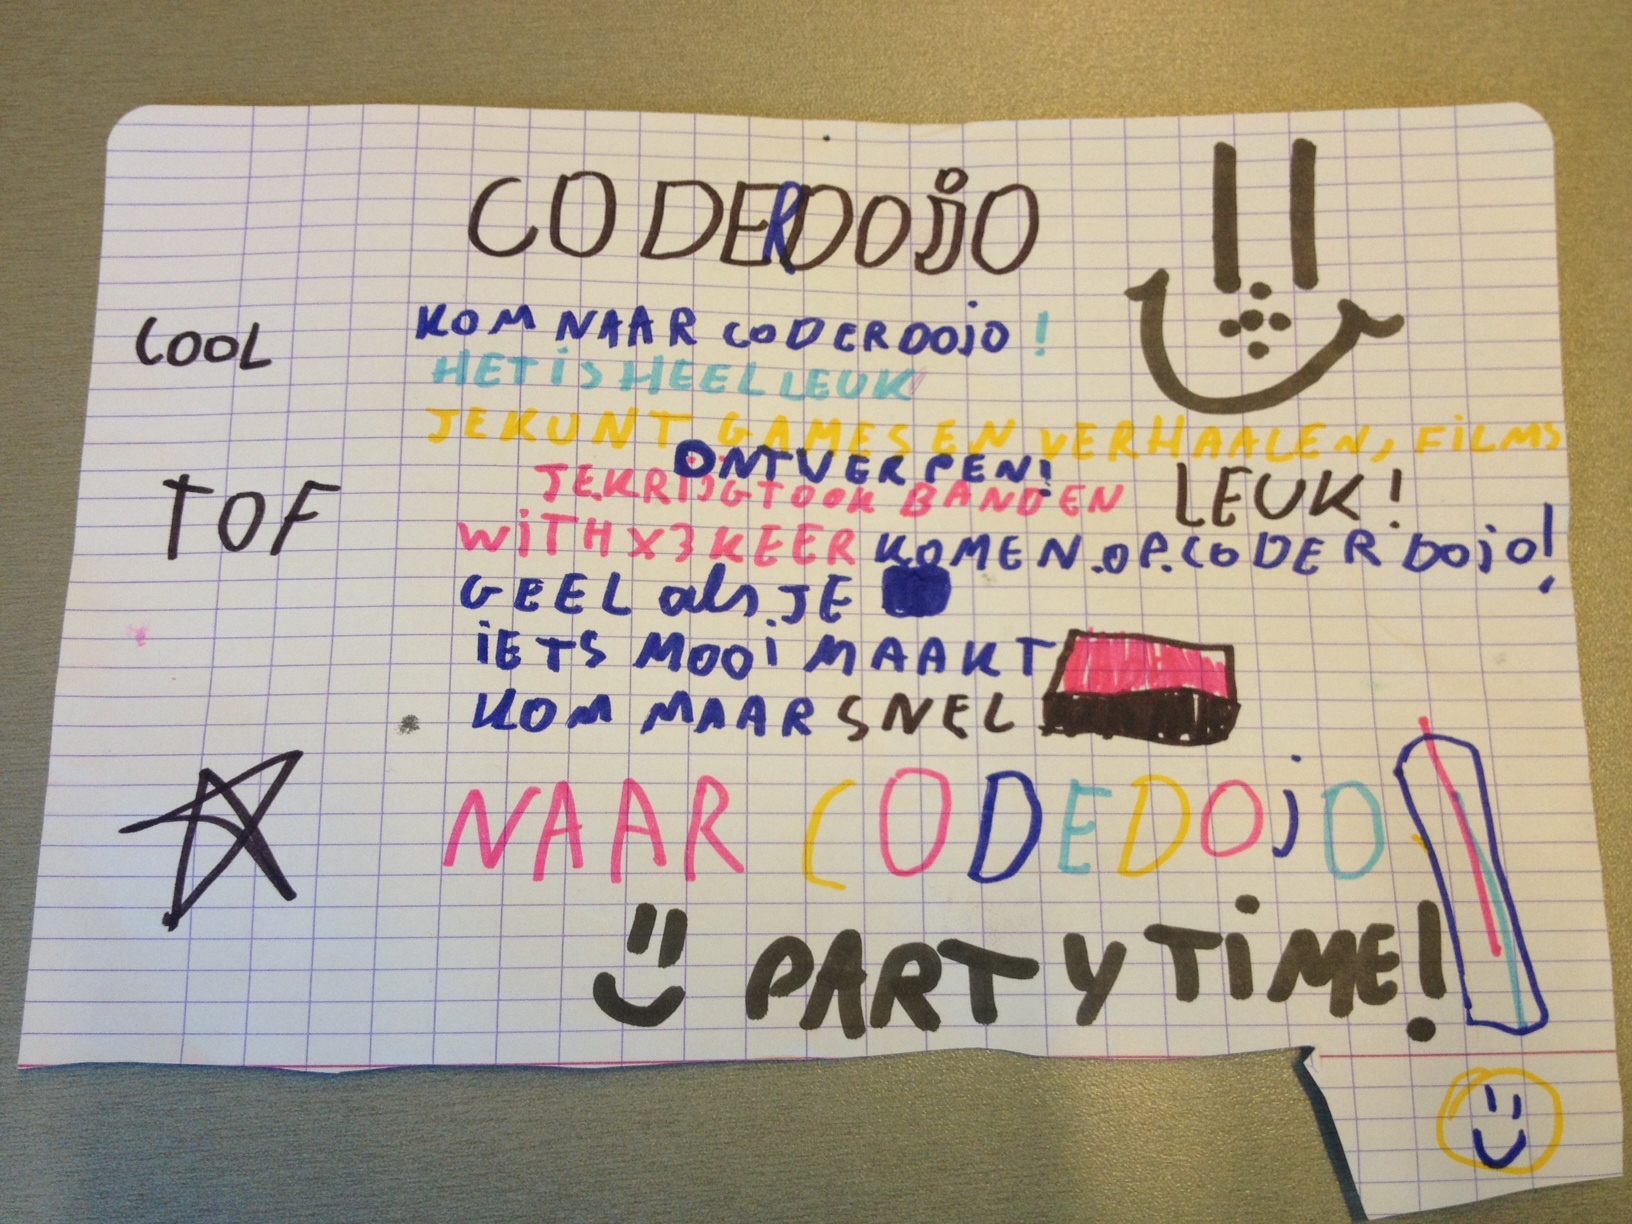 CODERDOJO
COOL
KOM NAAR CODERDOJO!
HET iS HEEL LEUK
JE KUNT GAMES EN VERHAALEN, FiLMS
ONTVERPEN!
JE KRIJGT OOK BANDEN
LEUK!
TOF
WiTH X 3 KEER KOMEN.OP.CODER DOJO!
GEEL als JE
iETS MOOi MAAKT
KOM MAAR SNEL
NAAR CODEDOJO
PARTY TiME!